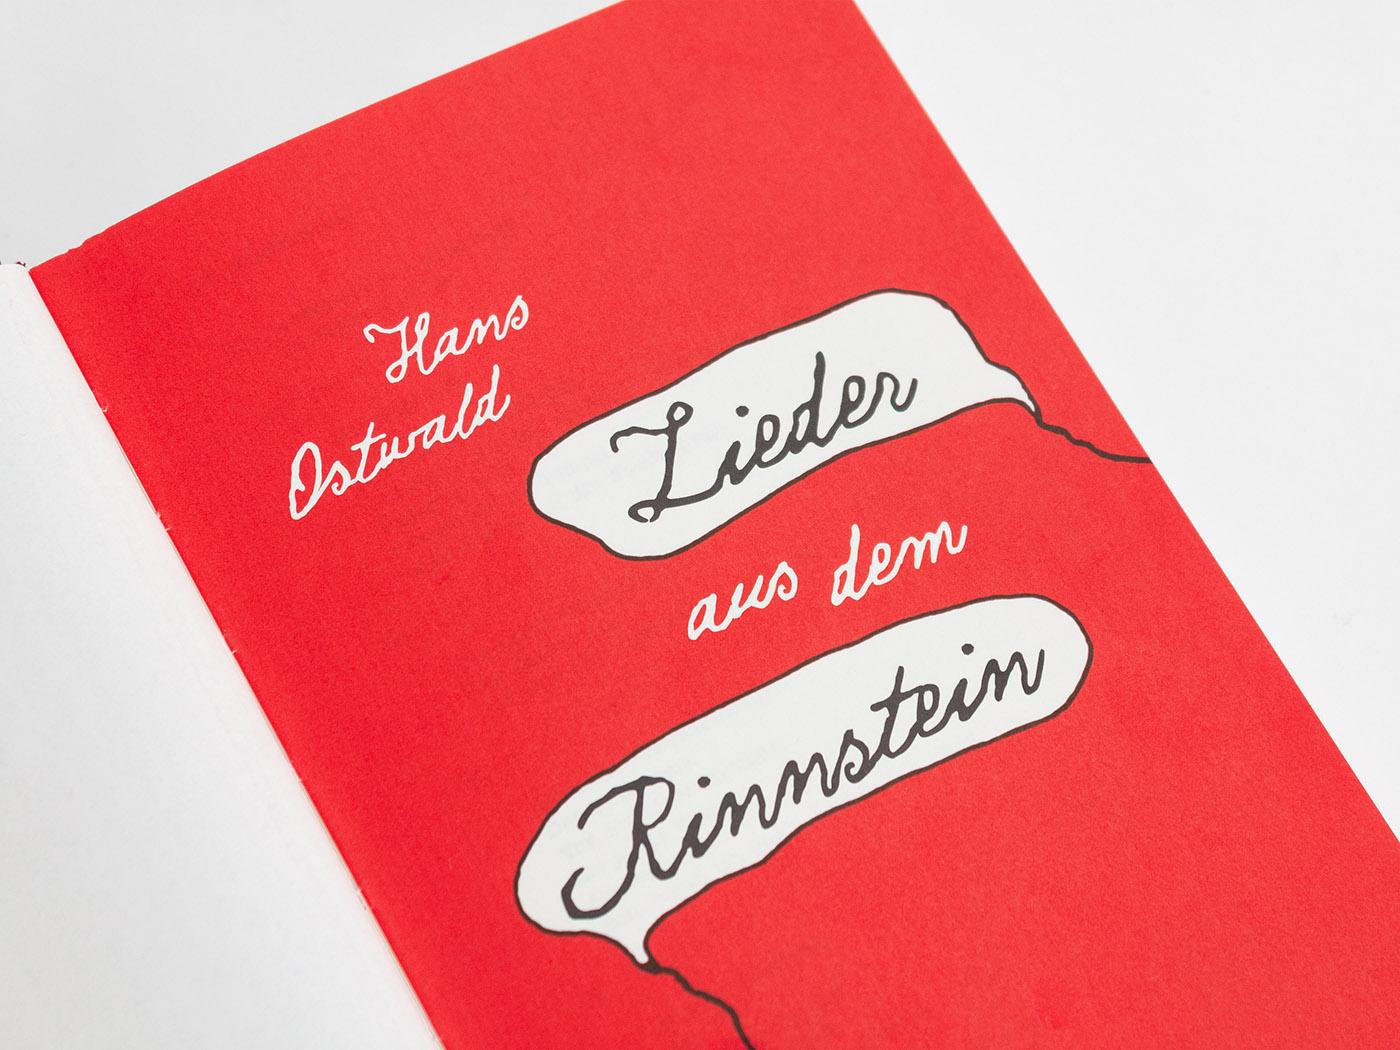 Hans
Ostwald
Lieder
aus dem
Rinnstein